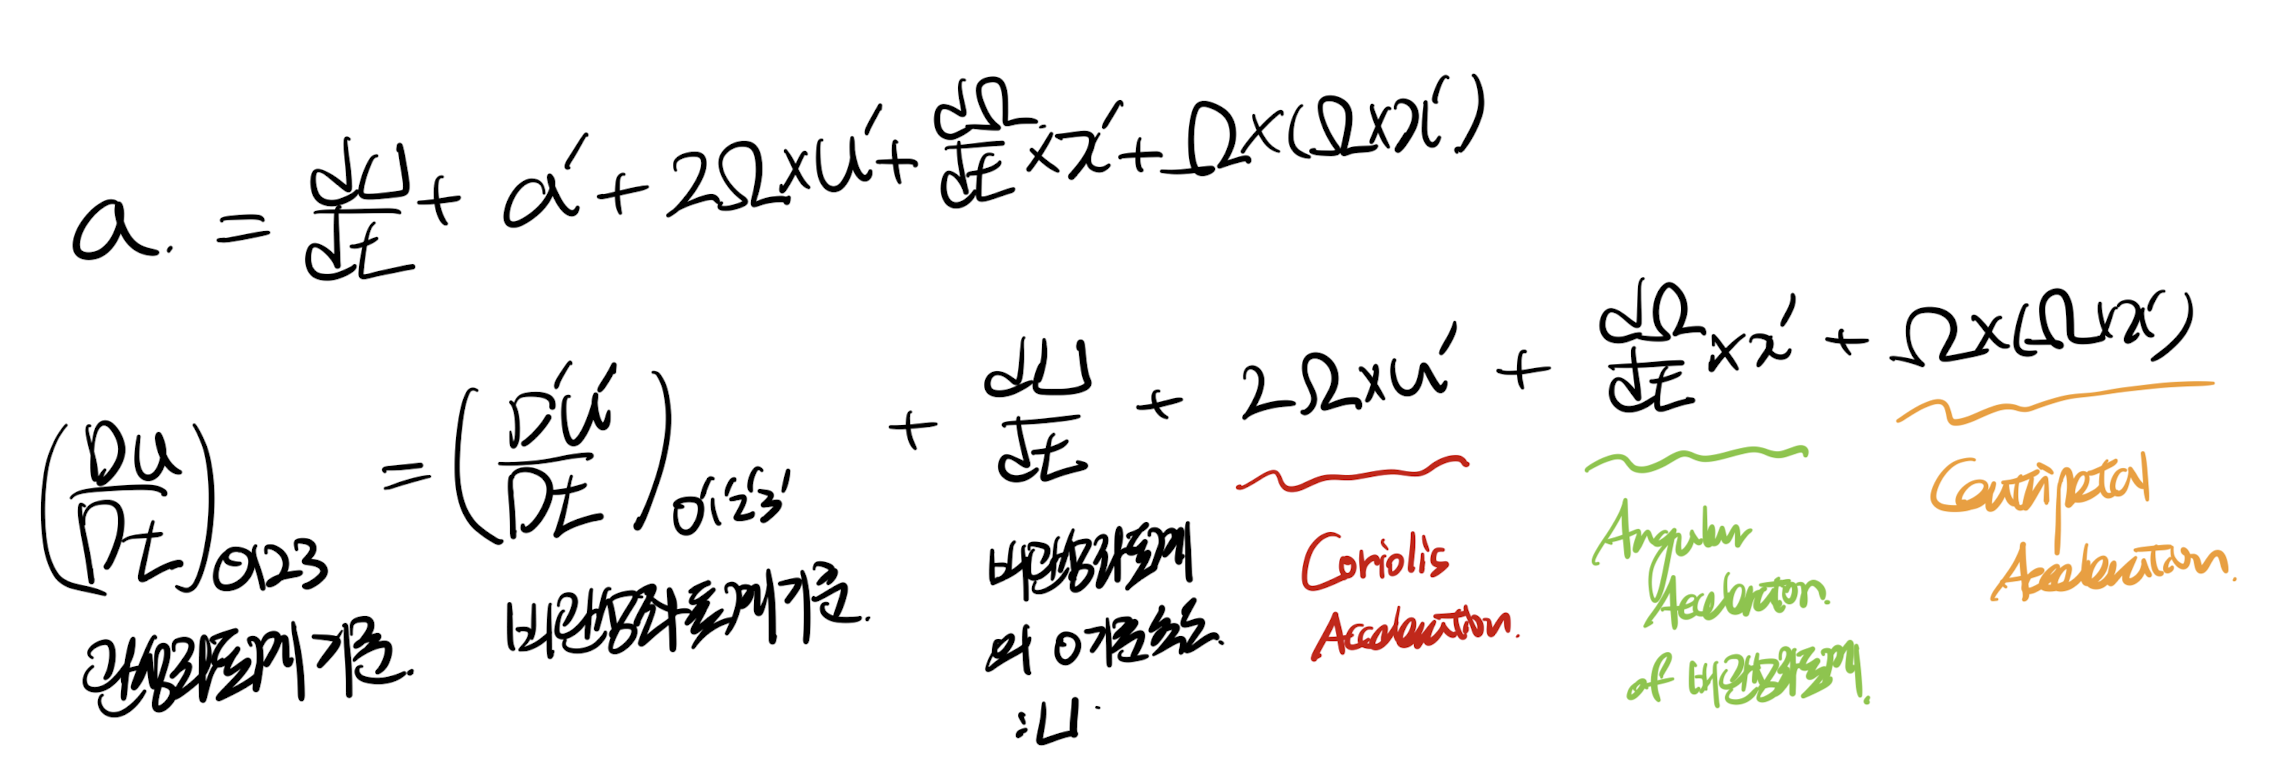 a. = dU/dt + a′ + 2Ω×u′ + dΩ/dt ×x′ + Ω×(Ω×x′)
(Du/Dt)0123 = (D′u′/Dt)0′1′2′3′ + dU/dt + 2Ω×u′ + dΩ/dt ×x′ + Ω×(Ω×x′)
관성좌표계 기준.
비관성좌표계 기준.
비관성좌표계
의 O기준 속도
: U.
Coriolis
Acceleration.
Angular
Acceleration.
of 비관성좌표계.
Centripetal
Acceleration.